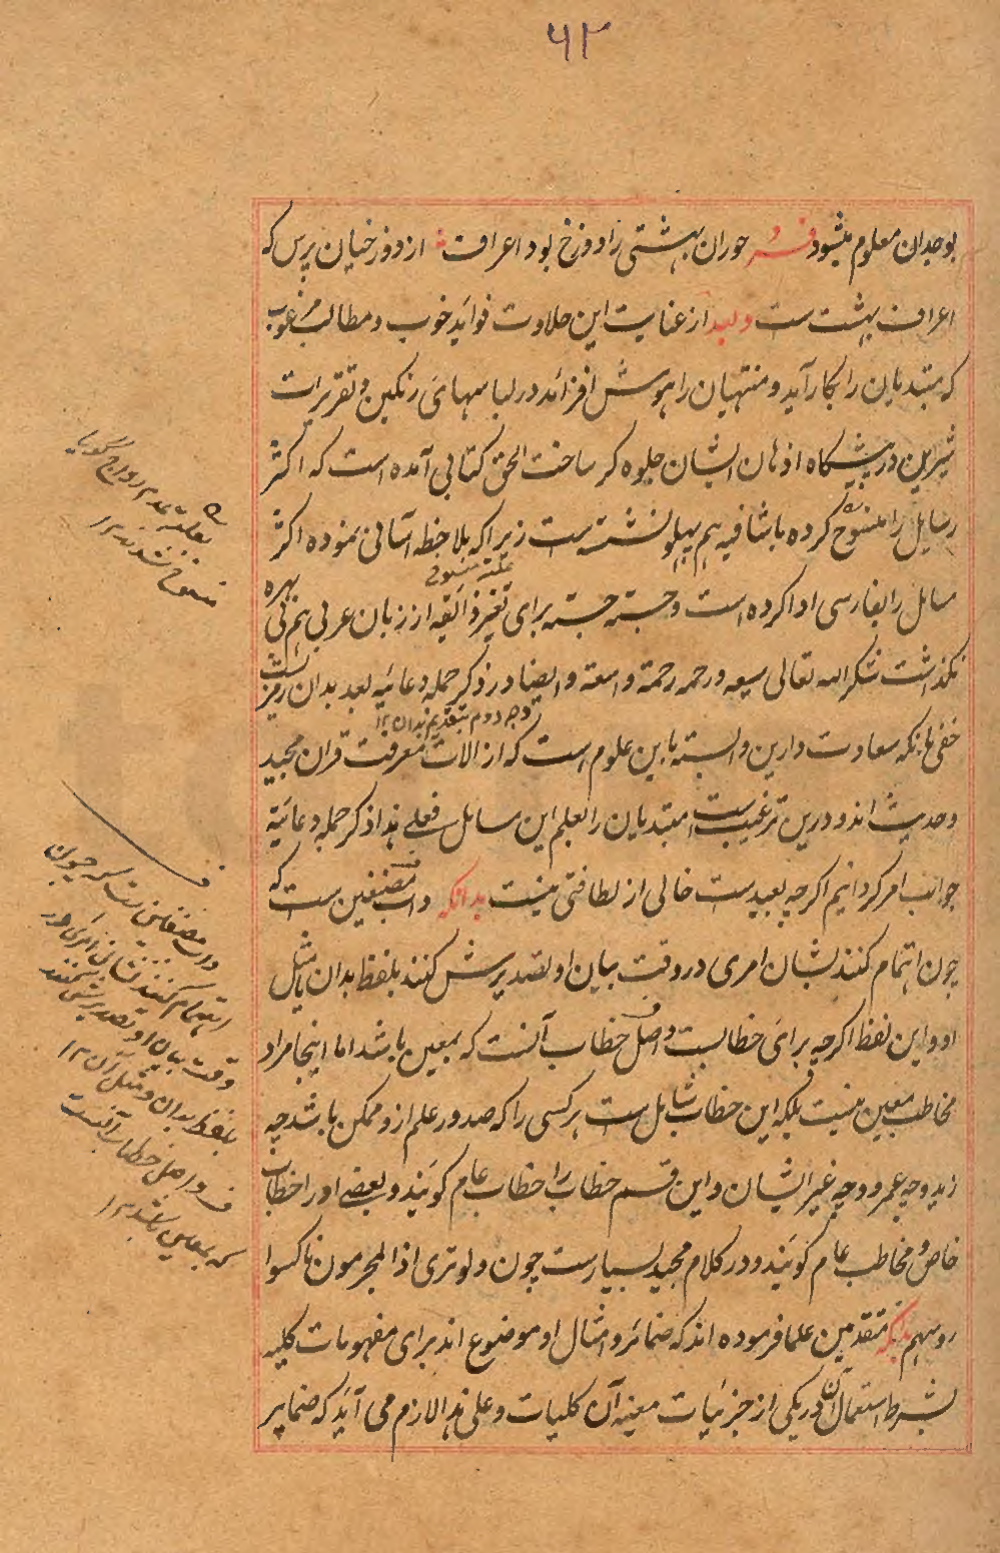 ۶۲
بوجدان معلوم میشود فرد حوران بهشتی را دوزخ بود اعراف از دوزخیان پرس که
اعراف بهشت ست و لبید از غایت این حلاوت فواید خوب و مطالب مرغوب
که مبتدیان را بکار آید و منتهیان را هوش افزاید در لباسهای رنگین و تقریرات
شیرین در پیشگاه اذهان ایشان جلوه گر ساخت الحق کتابی آمده است که اکثر
رسایل را منسوخ کرده با شافیه هم پهلو نشسته ست زیرا که بلاحظه آسانی نموده اکثر
علة منسوخی
مسایل را بفارسی ادا کرده است و جسته جسته برای تغیر ذایقه از زبان عربی هم بی بهره
نگذاشت شکر الله تعالی سعیه و رحمه رحمة واسعة و ایضا در ذکر جمله دعائیه بعد بدان رمزیست
وجه دوم بتقدیم بدان ۱۲
خفی بانکه سعادت دارین وابسته باین علوم است که از الات معرفت قران مجید
و حدیث اند و درین ترغیب ست مبتدیان را بعلم این مسایل فعلی هذا ذکر جمله دعائیة
جواب امر گردانیم اگرچه بعید ست خالی از لطافتی نیست بدانکه داب مصنفین است که
چون اهتمام کنند بشان امری در وقت بیان او تصدیرش کنند بلفظ بدان یا مثل
او و این لفظ اگرچه برای خطابست و اصل خطاب آنست که بمعین باشد اما اینجا مراد
مخاطب معین نیست بلکه این خطاب شامل ست هر کسی را که صدور علم ازو ممکن باشد چه
زید و چه عمرو و چه غیر ایشان و این قسم خطاب را خطاب عام گویند و بعضی او را خطاب
خاص و مخاطب عام گویند و در کلام مجید بسیار ست چون ولو تری اذ المجرمون ناکسوا
روسهم بدانکه متقدمین علما فرموده اند که ضمائر و امثال او موضوع اند برای مفهومات کلیه
بشرط استعمال آن در یکی از جزئیات معینه آن کلیات و علی هذا لازم می آید که ضمایر
بعلة عدم رواج گویا
منسوخ شدند ۱۲
ف
داب مصنفین است که چون
اهتمام کنند بشان امری در
وقت بیان او تصدیرش کنند
بلفظ بدان و مثل آن ۱۲
ف و اصل خطاب آنست
که بمعین باشد ۱۲